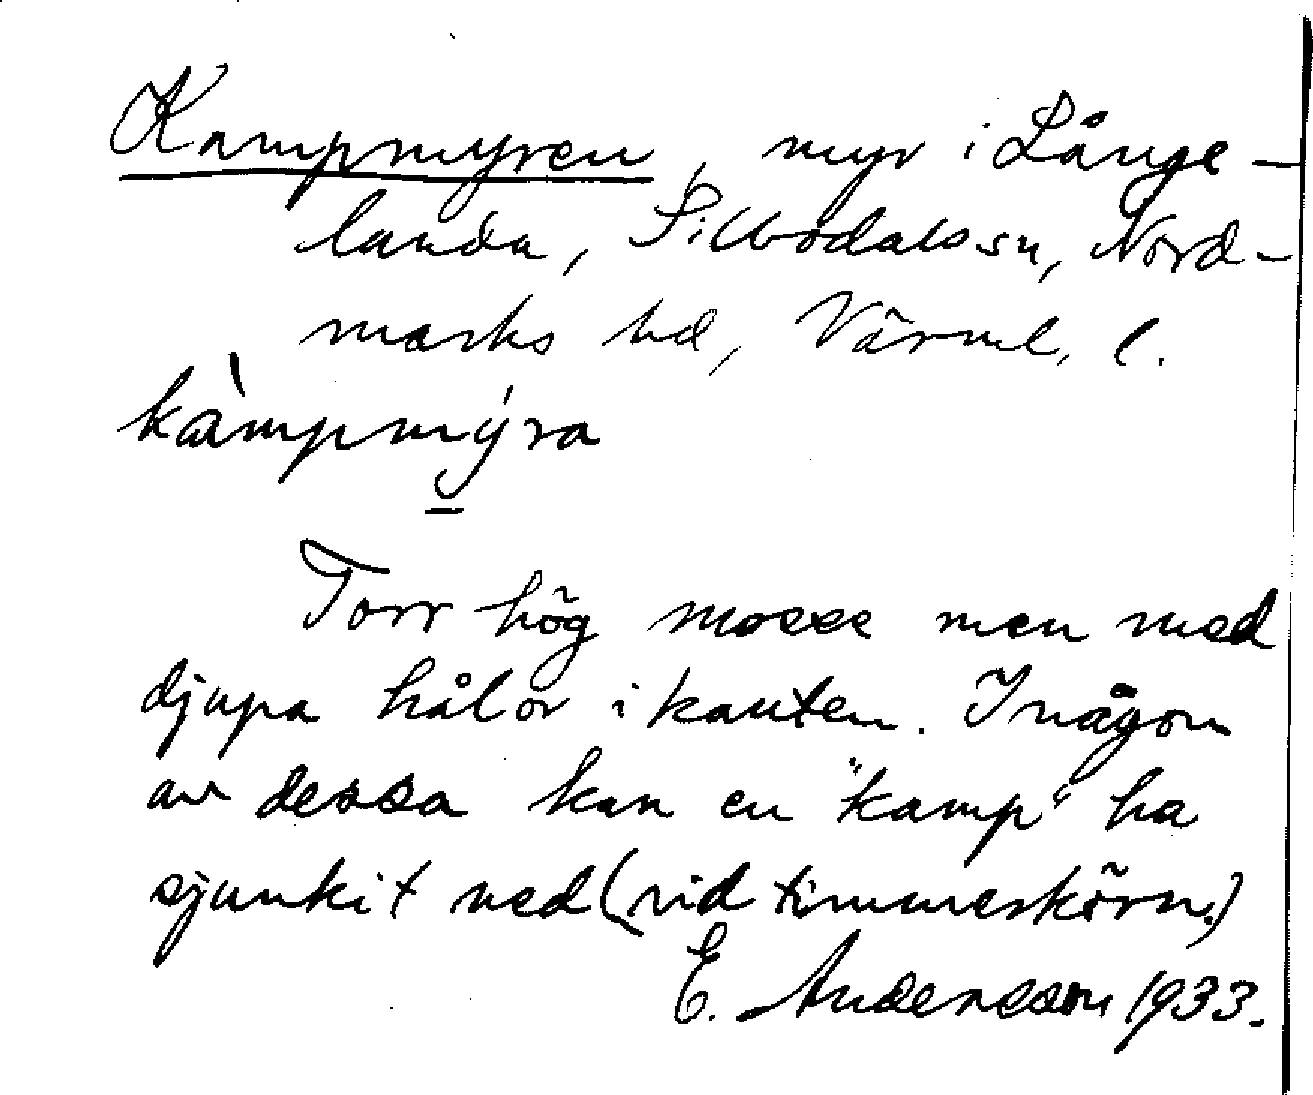 Kampmyren, myr i Långe-
landa, Silbodals sn, Nord-
marks hd, Värml. l.
kàmpmýra
Torr hög mosse men med
djupa hålor i kanten. I någon
av dessa kan en "kamp" ha
sjunkit ned (vid timmerkörn.)
E. Andersson 1933.